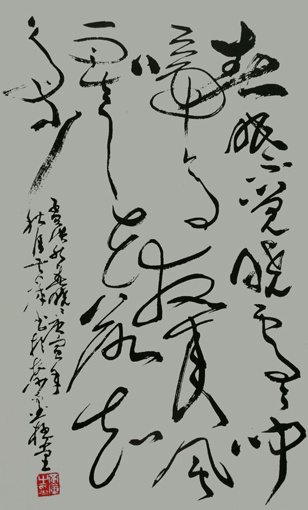 春眠不觉晓处处闻
啼鸟夜来风
雨声花落知
多少
孟浩然春晓庚寅年
秋月